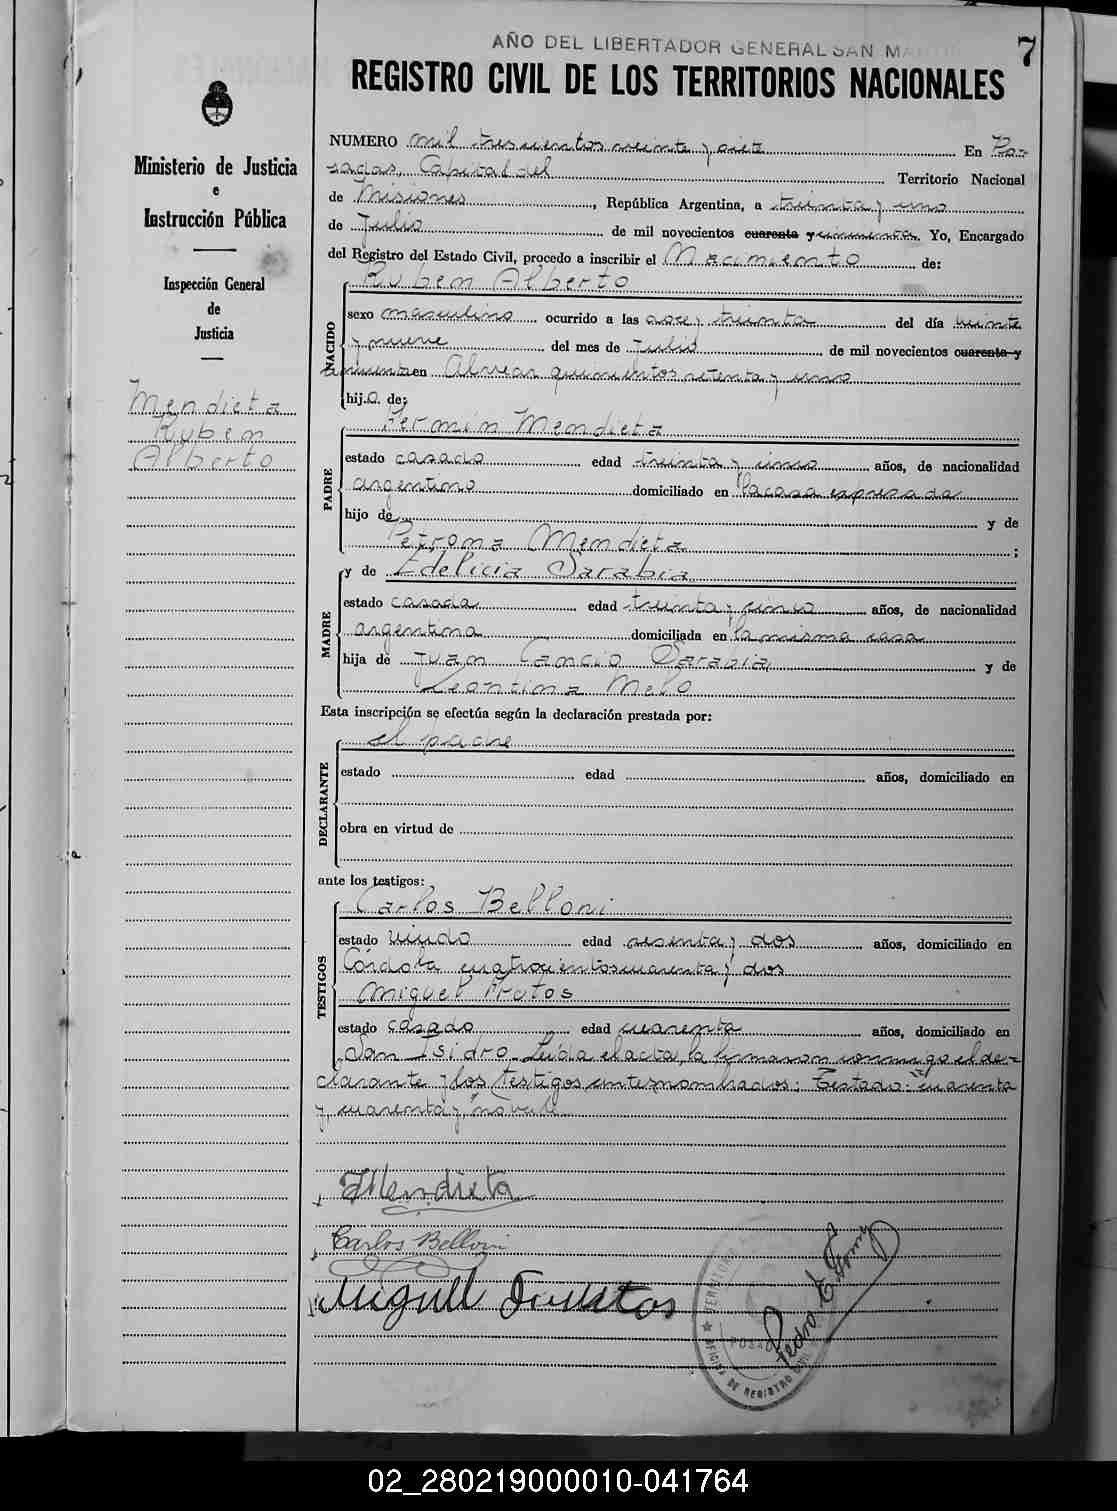 AÑO DEL LIBERTADOR GENERAL SAN MARTIN
7
REGISTRO CIVIL DE LOS TERRITORIOS NACIONALES
Ministerio de Justicia
e
Instrucción Pública
Inspección General
de
Justicia
Mendieta
Ruben
Alberto
NUMERO mil trescientos veinte y siete En Po-
sadas, Capital del Territorio Nacional
de Misiones, República Argentina, a treinta y uno
de Julio de mil novecientos cuarenta y cincuenta. Yo, Encargado
del Registro del Estado Civil, procedo a inscribir el Nacimiento de:
Ruben Alberto
NACIDO
sexo masculino ocurrido a las doce y treinta del día veinte
y nueve del mes de Julio de mil novecientos cuarenta y
cincuenta en Alvear quinientos setenta y uno
hijo de:
Fermin Mendieta
PADRE
estado casado edad treinta y cinco años, de nacionalidad
argentino domiciliado en la casa expresada
hijo de y de
Petrona Mendieta ;
y de Edelicia Sarabia
MADRE
estado casada edad treinta y cinco años, de nacionalidad
argentina domiciliada en la misma casa
hija de Juan Cancio Sarabia y de
Leontina Melo
Esta inscripción se efectúa según la declaración prestada por:
el padre
DECLARANTE
estado edad años, domiciliado en
obra en virtud de
ante los testigos:
Carlos Belloni
TESTIGOS
estado viudo edad sesenta y dos años, domiciliado en
Córdoba cuatrocientos cuarenta y dos
Miguel Frutos
estado casado edad cuarenta años, domiciliado en
San Isidro. Leida el acta, la firmaron conmigo el de-
clarante y los testigos antes nombrados: Testado: "cuarenta
y, cuarenta y," no vale
FMendieta
Carlos Belloni
Miguel Frutos
Pedro E.
TERRITORIO
POSADAS
OFICINA DE REGISTRO CIVIL
02_280219000010-041764